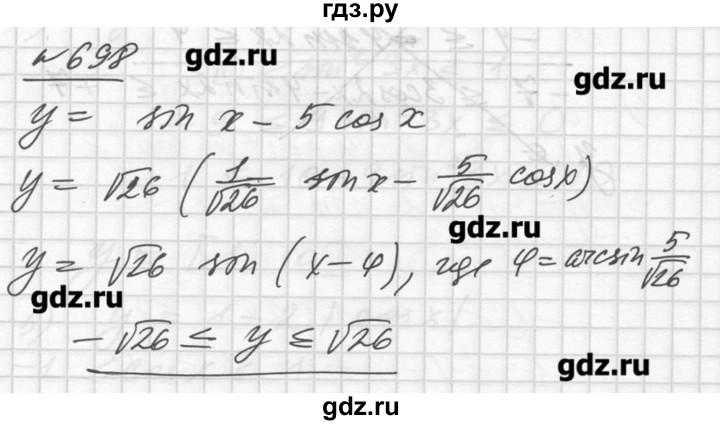 гдз.ру
№698
gdz.ru
gdz.ru
y = sin x - 5 cos x
y = √26 (1/√26 sin x - 5/√26 cos x)
gdz.ru
y = √26 sin (x - φ), где φ = arcsin 5/√26
gdz.ru
-√26 ≤ y ≤ √26
gdz.ru
gdz.ru